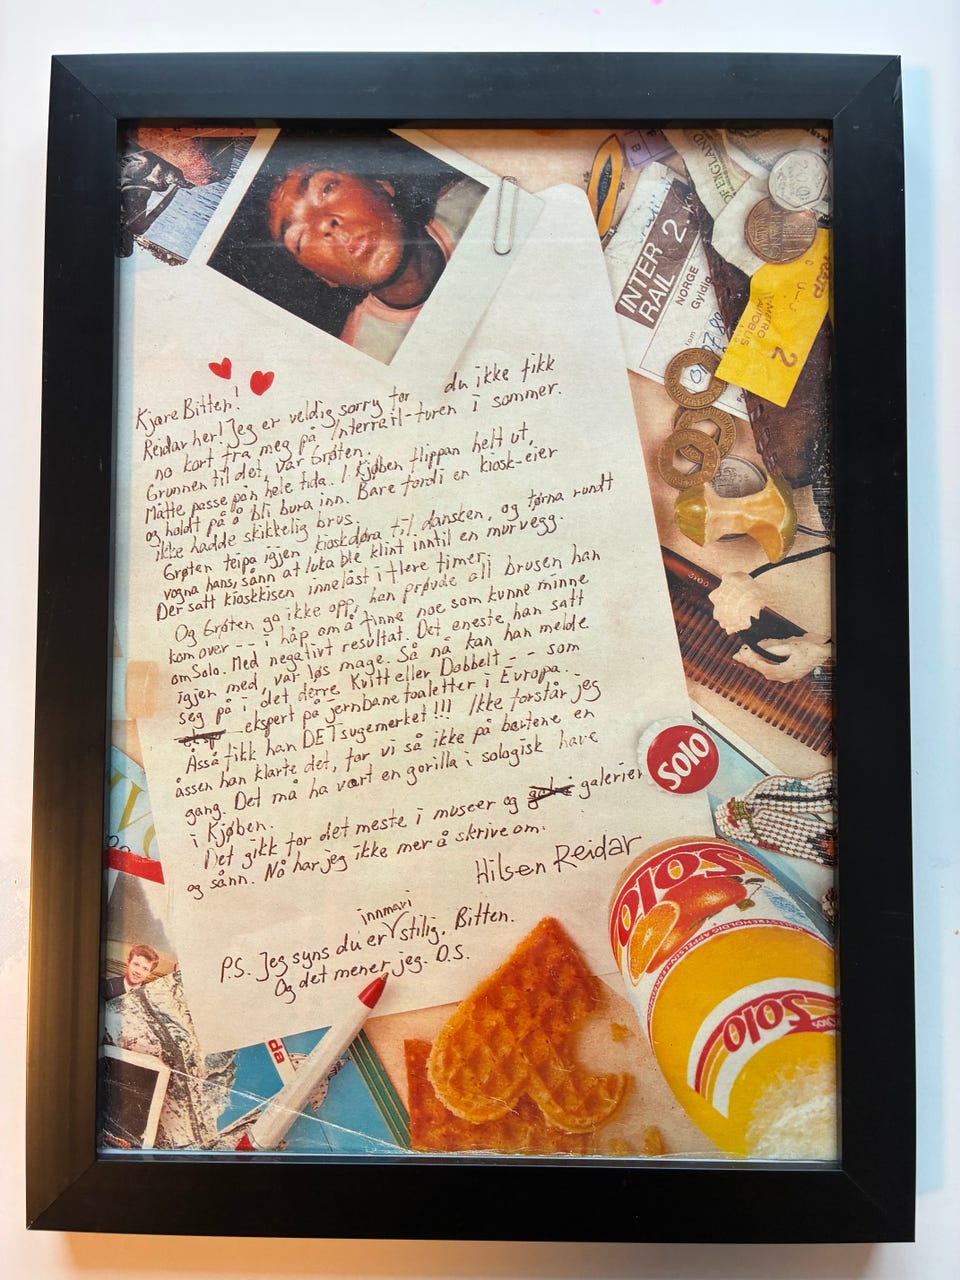 Kjære Bitten!
Reidar her! Jeg er veldig sorry for du ikke fikk
no kort fra meg på Interrail-turen i sommer.
Grunnen til det, var Grøten.
Måtte passe på'n hele tida. I Kjøben flippan helt ut,
og holdt på å bli bura inn. Bare fordi en kiosk-eier
ikke hadde skikkelig brus.
Grøten teipa igjen kioskdøra til dansken, og tørna rundt
vogna hans, sånn at luka ble klint inntil en murvegg.
Der satt kioskkisen innelåst i flere timer.
Og Grøten ga ikke opp, han prøvde all brusen han
kom over -- i håp om å finne noe som kunne minne
om Solo. Med negativt resultat. Det eneste han satt
igjen med, var løs mage. Så nå kan han melde
seg på i det derre Kvitt eller Dobbelt -- som
eksp ekspert på jernbanetoaletter i Europa.
Åsså fikk han DET sugemerket!!! Ikke forstår jeg
åssen han klarte det, for vi så ikke på bertene en
gang. Det må ha vært en gorilla i sologisk have
i Kjøben.
Det gikk for det meste i museer og galerier
og sånn. Nå har jeg ikke mer å skrive om.
Hilsen Reidar
P.S. Jeg syns du er innmari stilig, Bitten.
Og det mener jeg. D.S.
INTER
RAIL
2.
NORGE
Gyldig
fom
OF ENGLAND
METRO
AUTOBUS
2
SOLO
SOLO
Solo
da